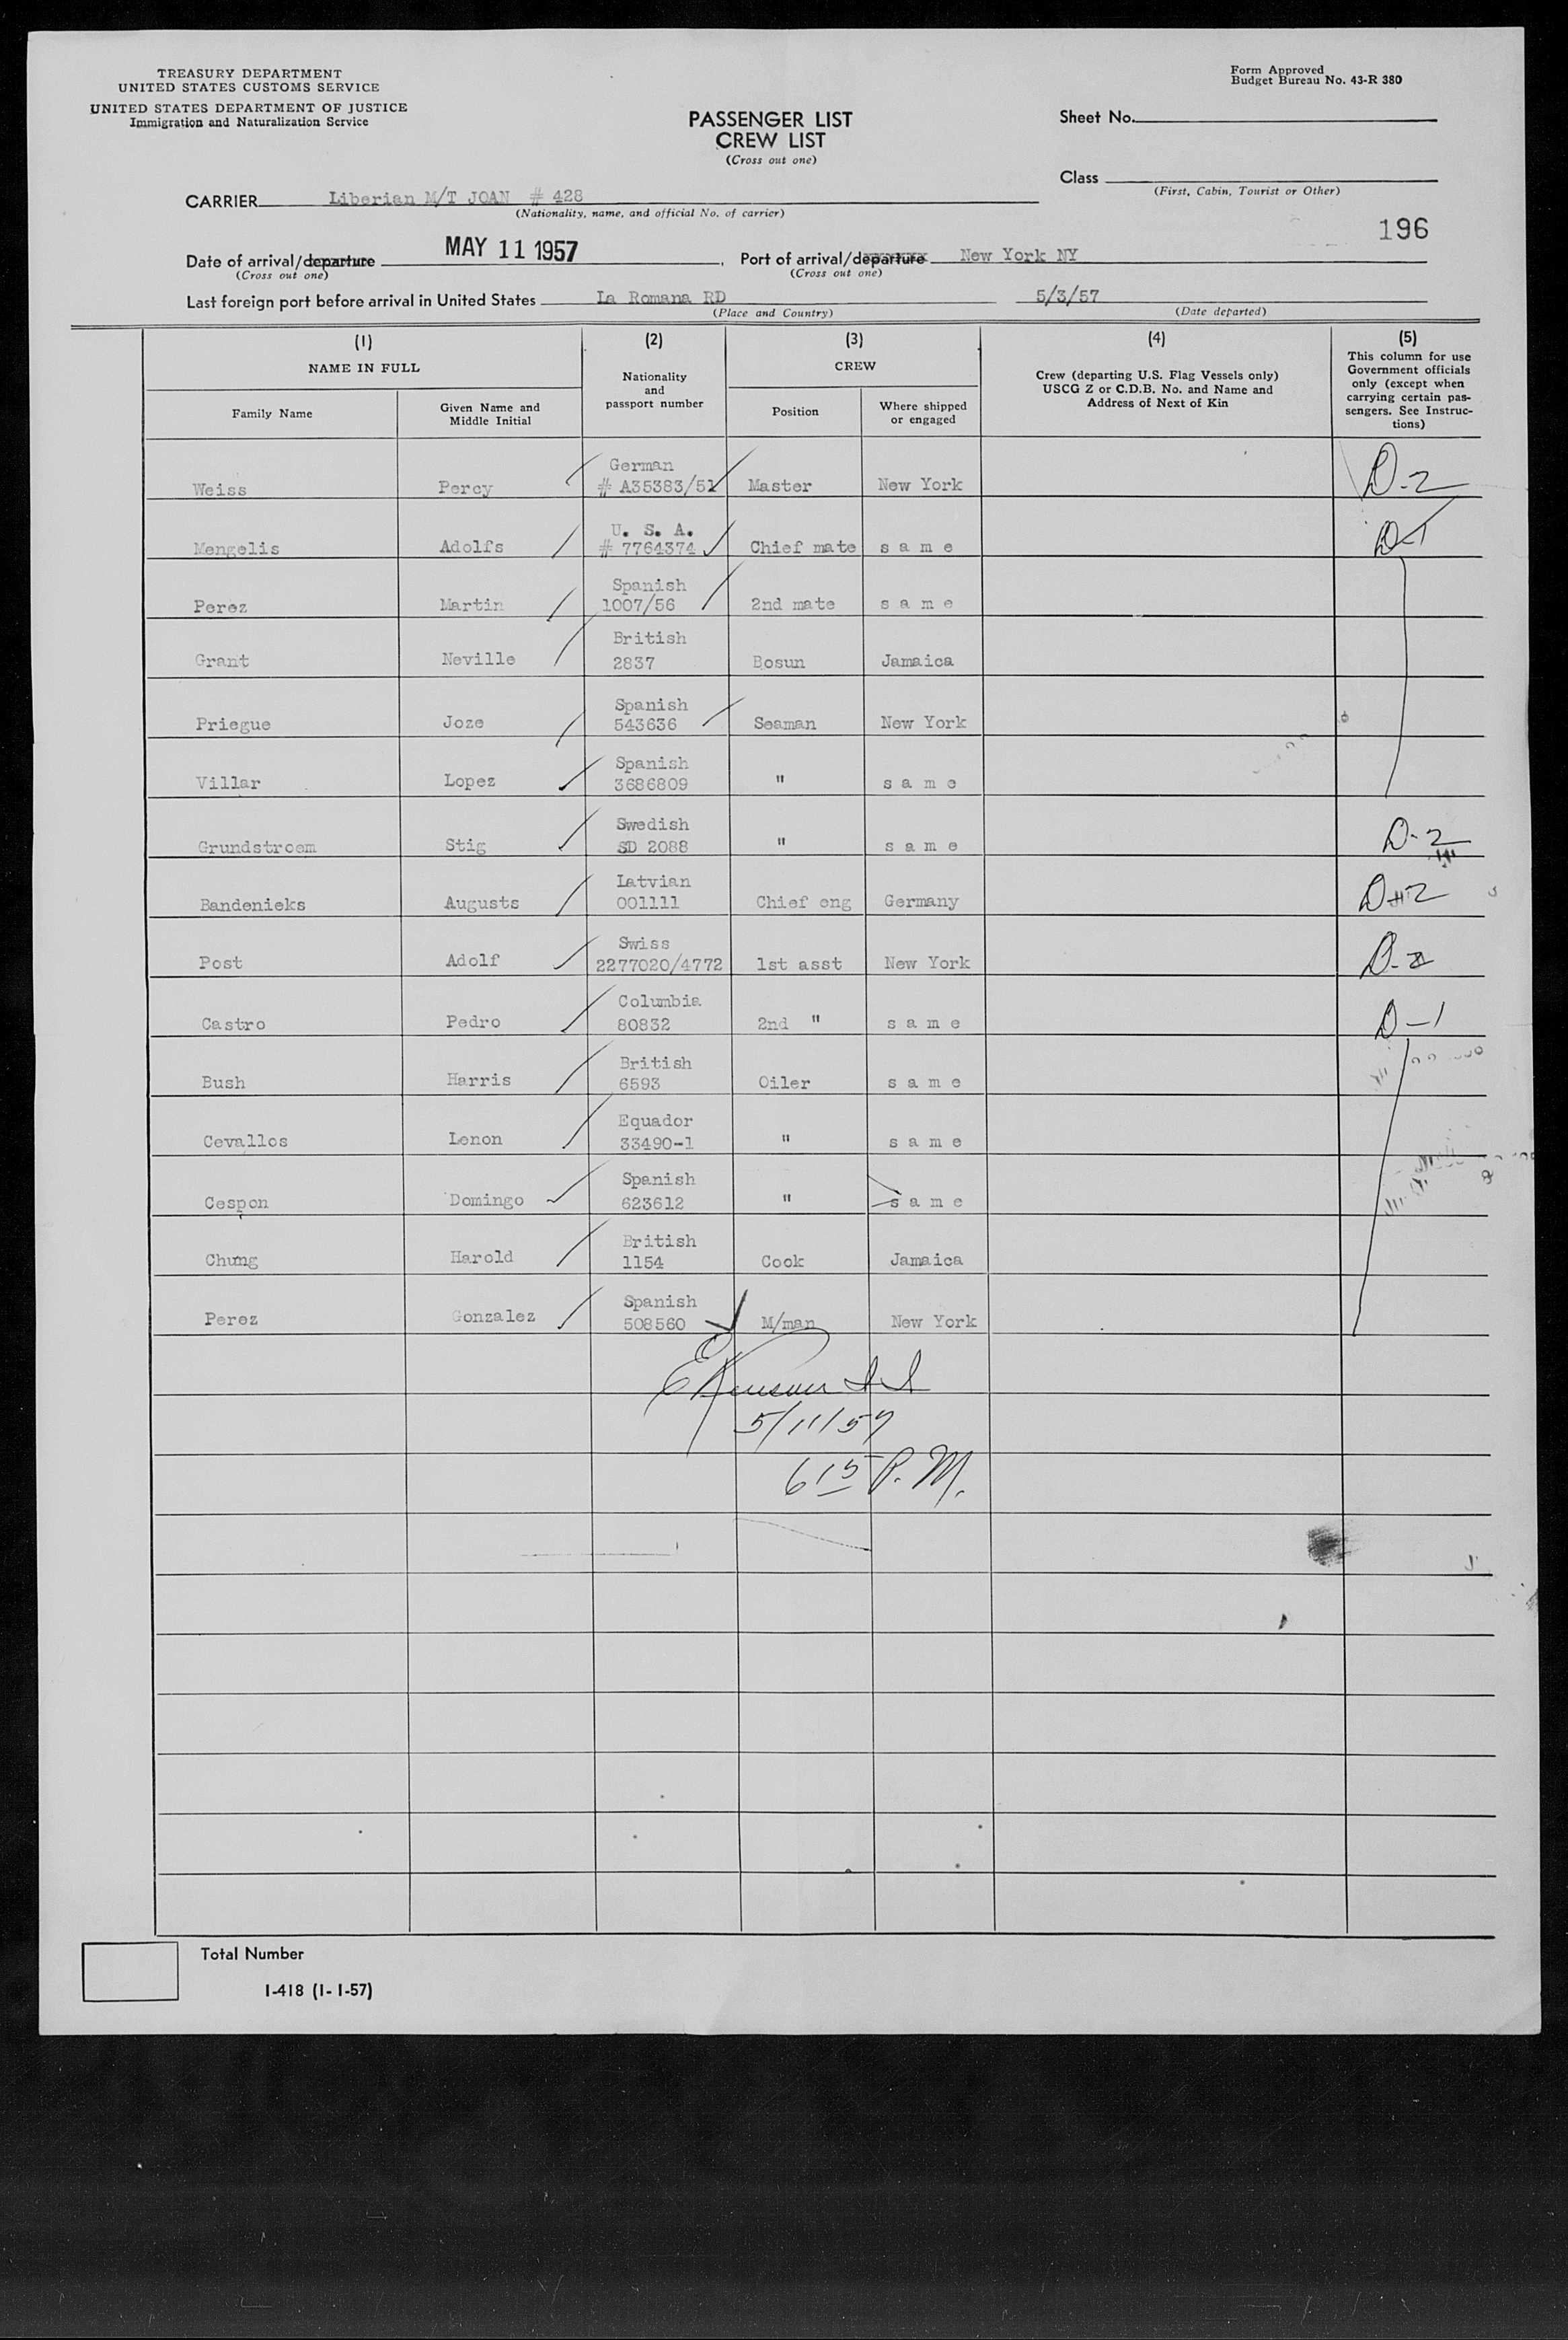 TREASURY DEPARTMENT
UNITED STATES CUSTOMS SERVICE
UNITED STATES DEPARTMENT OF JUSTICE
Immigration and Naturalization Service
Form Approved
Budget Bureau No. 43-R 380
PASSENGER LIST
CREW LIST
(Cross out one)
Sheet No.
Class
(First, Cabin, Tourist or Other)
CARRIER Liberian M/T JOAN # 428
(Nationality, name, and official No. of carrier)
196
Date of arrival/departure MAY 11 1957, Port of arrival/departure New York NY
(Cross out one) (Cross out one)
Last foreign port before arrival in United States La Romana RD 5/3/57
(Place and Country) (Date departed)
(1) (2) (3) (4) (5)
NAME IN FULL
Family Name
Given Name and
Middle Initial
Nationality
and
passport number
CREW
Position
Where shipped
or engaged
Crew (departing U.S. Flag Vessels only)
USCG Z or C.D.B. No. and Name and
Address of Next of Kin
This column for use
Government officials
only (except when
carrying certain pas-
sengers. See Instruc-
tions)
German
Weiss Percy # A35383/51 Master New York D-2
U. S. A.
Mengelis Adolfs # 7764374 Chief mate s a m e D-1
Spanish
Perez Martin 1007/56 2nd mate s a m e
British
Grant Neville 2837 Bosun Jamaica
Spanish
Priegue Joze 543636 Seaman New York
Spanish
Villar Lopez 3686809 " s a m e
Swedish
Grundstroem Stig SD 2088 " s a m e D-2
Latvian
Bandenieks Augusts 001111 Chief eng Germany D-2
Swiss
Post Adolf 2277020/4772 1st asst New York D-2
Columbia
Castro Pedro 80832 2nd " s a m e D-1
British
Bush Harris 6593 Oiler s a m e
Equador
Cevallos Lenon 33490-1 " s a m e
Spanish
Cespon Domingo 623612 " s a m e
British
Chung Harold 1154 Cook Jamaica
Spanish
Perez Gonzalez 508560 M/man New York
5/11/57
615 P.M.
Total Number
I-418 (1-1-57)